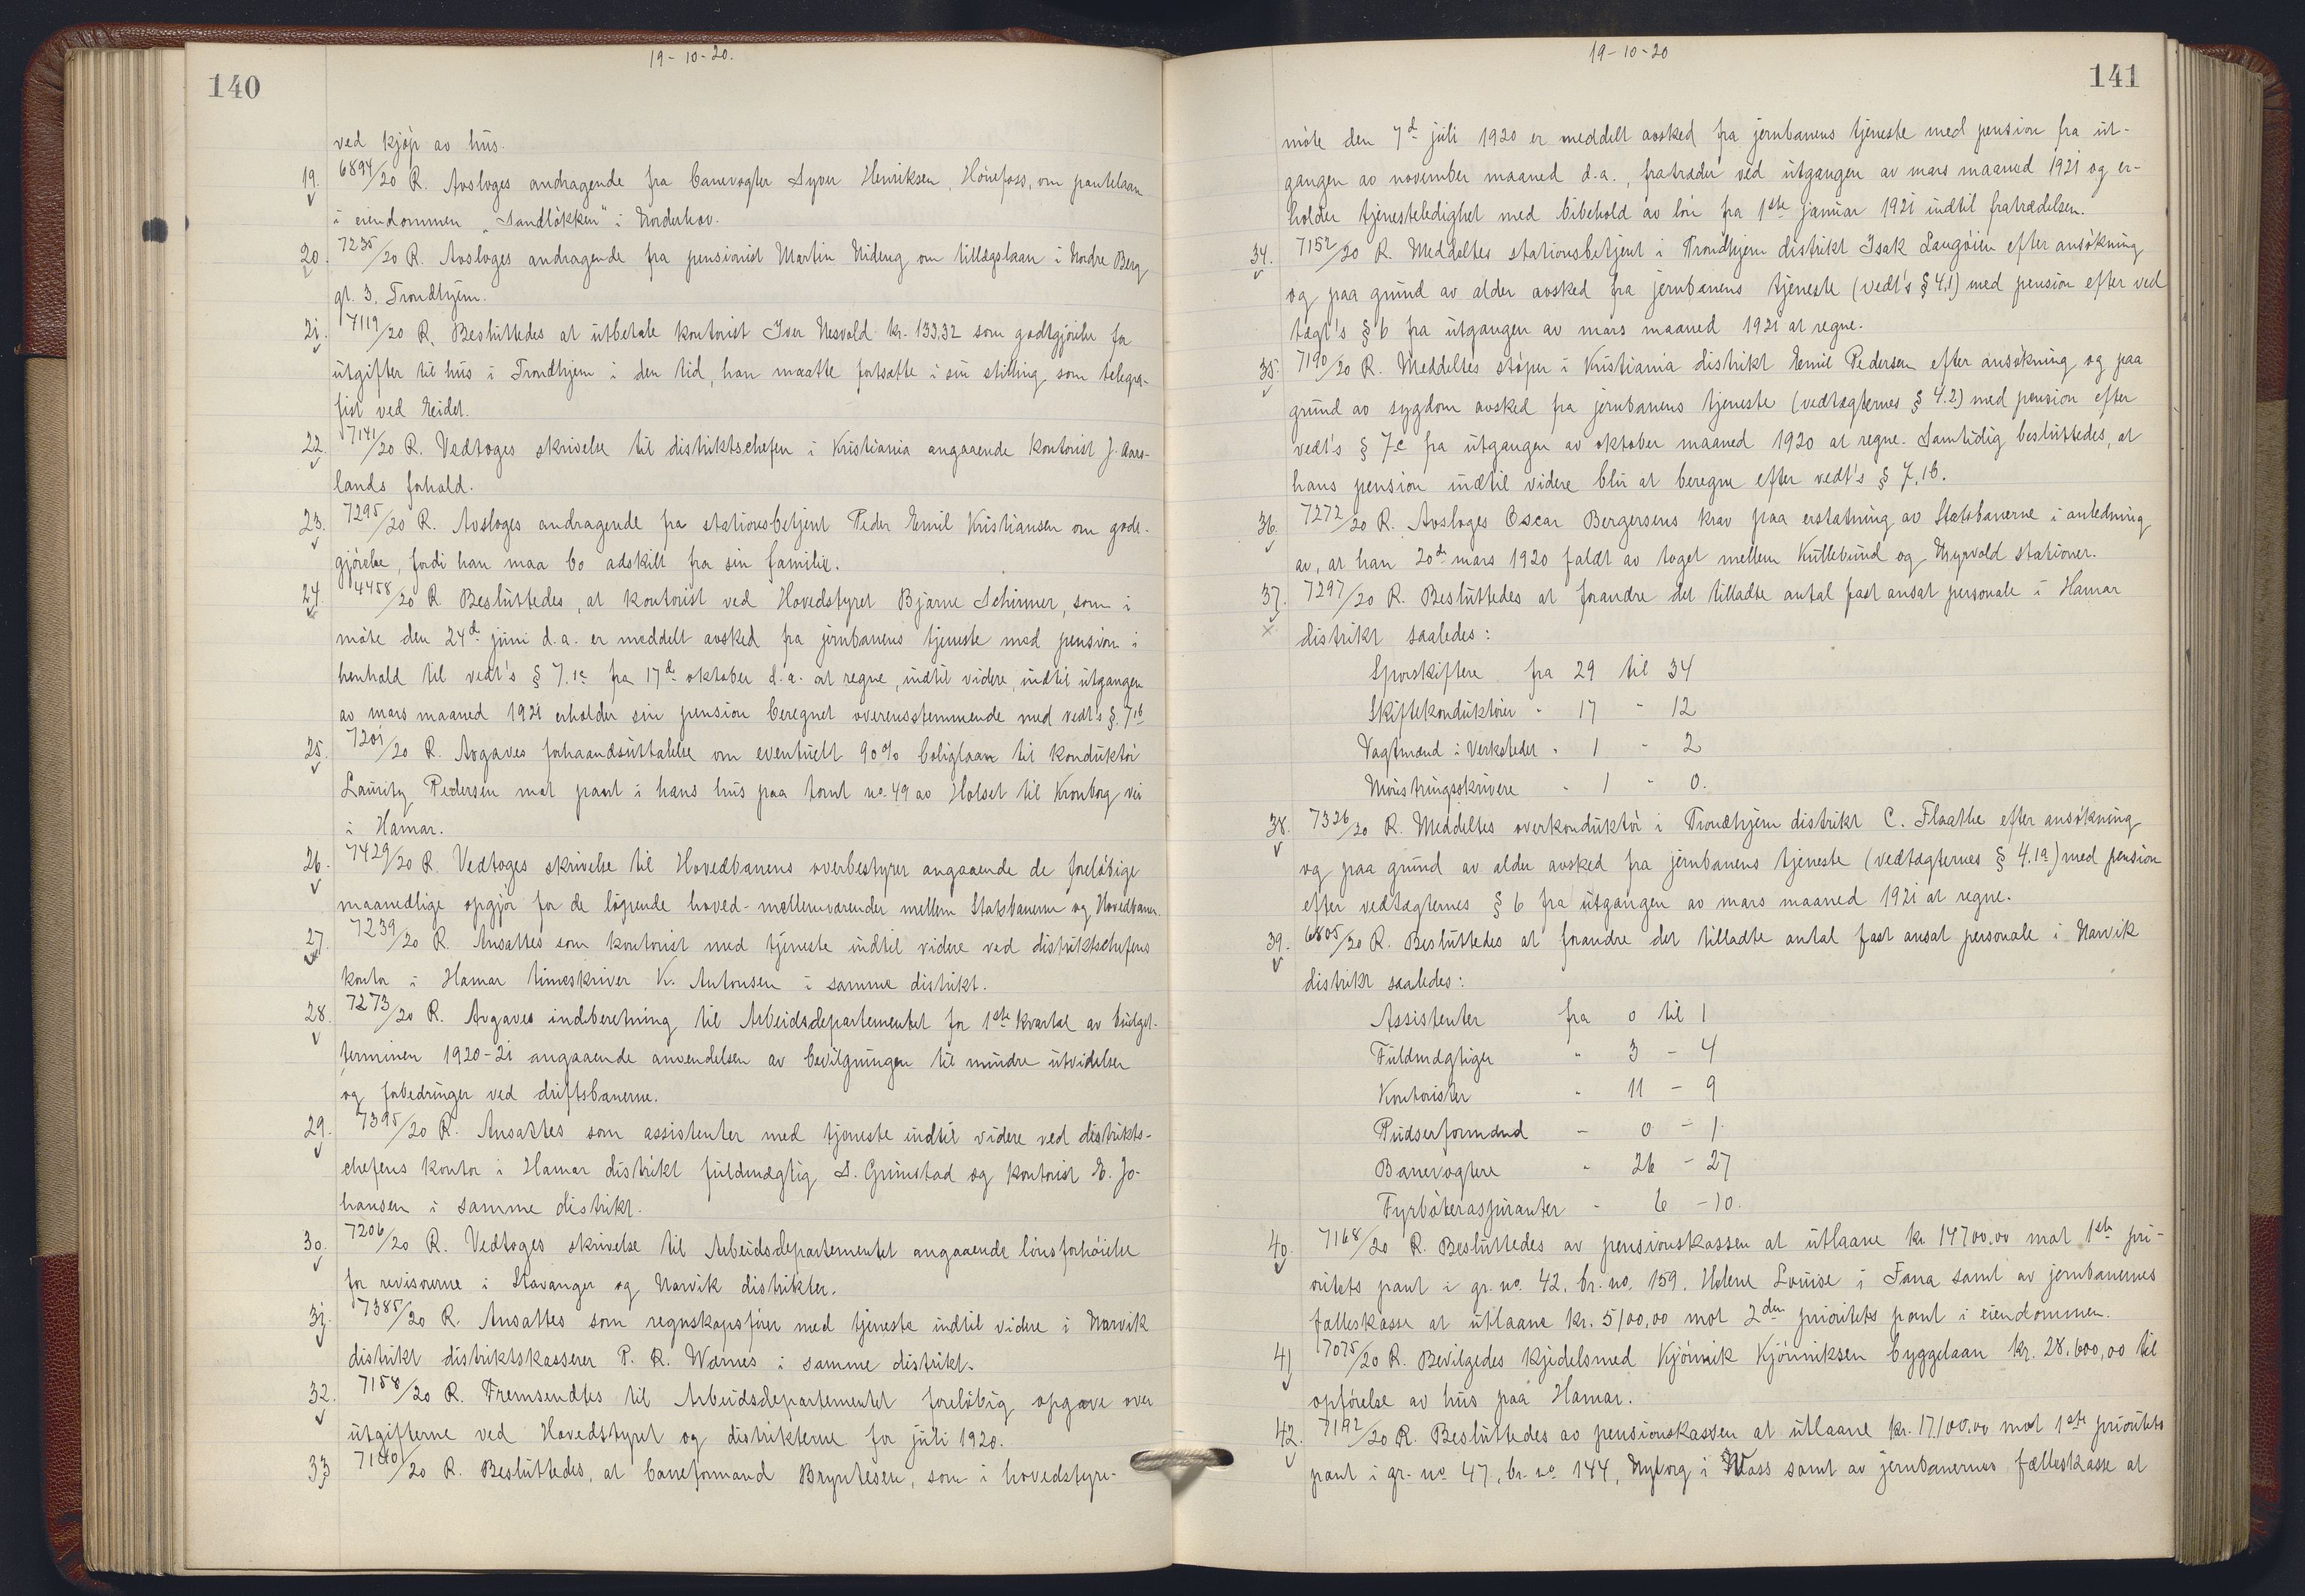 140
19-10-20.
ved kjøp av hus.
19. 6894/20 R. Avsloges andragende fra banevogter Syver Henriksen, Hönefoss, om pantelaan
i eiendommen „Sandlökken" i Norderhov.
20. 7235/20 R. Avsloges andragende fra pensionist Martin Rideng om tillægslaan i Nordre Berg
gt. 3, Trondhjem.
21. 7119/20 R. Besluttedes at utbetale kontorist Iver Nesvold kr. 133,32 som godtgjörelse for
utgifter til hus i Trondhjem i den tid, han maatte fortsætte i sin stilling som telegra-
fist ved Eidet.
22. 7141/20 R. Vedtoges skrivelse til distriktschefen i Kristiania angaaende kontorist J. Aars-
lands forhold.
23. 7295/20 R. Avsloges andragende fra stationsbetjent Peder Emil Kristiansen om godt-
gjörelse, fordi han maa bo adskilt fra sin familie.
24. 4458/20 R. Besluttedes, at kontorist ved Hovedstyret Bjarne Schirmer, som i
möte den 24de juni d.a. er meddelt avsked fra jernbanens tjeneste med pension i
henhold til vedt's § 7.1c fra 17de oktober d.a. at regne, indtil videre, indtil utgangen
av mars maaned 1921 erholder sin pension beregnet overensstemmende med vedt's §. 7 1b
25. 7201/20 R. Avgaves forhaandsuttalelse om eventuelt 90% boliglaan til konduktör
Lauritz Pedersen mot pant i hans hus paa tomt no. 49 av Holset til Kronborg vei
i Hamar.
26. 7429/20 R. Vedtoges skrivelse til Hovedbanens overbestyrer angaaende de forelöbige
maanedlige opgjör for de löpende hoved-mellemværender mellem Statsbanerne og Hovedbanen.
27. 7239/20 R. Ansattes som kontorist med tjeneste indtil videre ved distriktschefens
kontor i Hamar timeskriver K. Antonsen i samme distrikt.
28. 7273/20 R. Avgaves indberetning til Arbeidsdepartementet for 1ste kvartal av budget-
terminen 1920-21 angaaende anvendelsen av bevilgningen til mindre utvidelser
og forbedringer ved driftsbanerne.
29. 7395/20 R. Ansattes som assistenter med tjeneste indtil videre ved distrikts-
chefens kontor i Hamar distrikt fuldmægtig S. Grimstad og kontorist E. Jo-
hansen i samme distrikt.
30. 7206/20 R. Vedtoges skrivelse til Arbeidsdepartementet angaaende lönsforhöielse
for revisorerne i Stavanger og Narvik distrikter.
31. 7385/20 R. Ansattes som regnskapsförer med tjeneste indtil videre i Narvik
distrikt distriktskasserer P. R. Wærnes i samme distrikt.
32. 7158/20 R. Fremsendtes til Arbeidsdepartementet forelöbig opgave over
utgifterne ved Hovedstyret og distrikterne for juli 1920.
33 7140/20 R. Besluttedes, at baneformand Bryntesen, som i hovedstyre-
141
19-10-20
möte den 7de juli 1920 er meddelt avsked fra jernbanens tjeneste med pension fra ut-
gangen av november maaned d.a., fratræder ved utgangen av mars maaned 1921 og er-
holder tjenesteledighet med bibehold av lön fra 1ste januar 1921 indtil fratrædelsen.
34. 7152/20 R. Meddeltes stationsbetjent i Trondhjem distrikt Isak Langöien efter ansökning
og paa grund av alder avsked fra jernbanens tjeneste (vedt's § 4,1) med pension efter ved
tægt's § 6 fra utgangen av mars maaned 1921 at regne.
35. 7190/20 R. Meddeltes stöper i Kristiania distrikt Emil Pedersen efter ansökning og paa
grund av sygdom avsked fra jernbanens tjeneste (vedtægternes § 4.2) med pension efter
vedt's § 7.c fra utgangen av oktober maaned 1920 at regne. Samtidig besluttedes, at
hans pension indtil videre blir at beregne efter vedt's § 7.1b.
36. 7272/20 R. Avsloges Oscar Bergersens krav paa erstatning av Statsbanerne i anledning
av, at han 20de mars 1920 faldt av toget mellem Kullebund og Myrvold stationer.
37. 7297/20 R. Besluttedes at forandre det tilladte antal fast ansat personale i Hamar
distrikt saaledes:
Sporskiftere fra 29 til 34
Skiftekonduktörer " 17 - 12
Vagtmænd i Verksteder " 1 - 2
Mönstringsskrivere - 1 - 0.
38. 7326/20 R. Meddeltes overkonduktör i Trondhjem distrikt C. Flaathe efter ansökning
og paa grund av alder avsked fra jernbanens tjeneste (vedtægternes § 4.1a) med pension
efter vedtægternes § 6 fra utgangen av mars maaned 1921 at regne.
39. 6805/20 R. Besluttedes at forandre det tilladte antal fast ansat personale i Narvik
distrikt saaledes:
Assistenter fra 0 til 1
Fuldmægtiger " 3 - 4
Kontorister " 11 - 9
Pudserformænd - 0 - 1
Banevogtere " 26 - 27
Fyrböteraspiranter - 6 - 10.
40. 7168/20 R. Besluttedes av pensionskassen at utlaane kr 14700,00 mot 1ste pri-
oritets pant i gr. no. 42, br. no. 159, Helene Louise i Fana samt av jernbanernes
fælleskasse at utlaane kr. 5100,00 mot 2den prioritets pant i eiendommen.
41 7075/20 R. Bevilgedes kjedelsmed Kjönnik Kjönniksen byggelaan kr. 28,600,00 til
opförelse av hus paa Hamar.
42. 7192/20 R. Besluttedes av pensionskassen at utlaane kr. 17,100,00 mot 1ste prioritets
pant i gr. no. 47, br. no 144, Nyborg i Voss samt av jernbanernes fælleskasse at